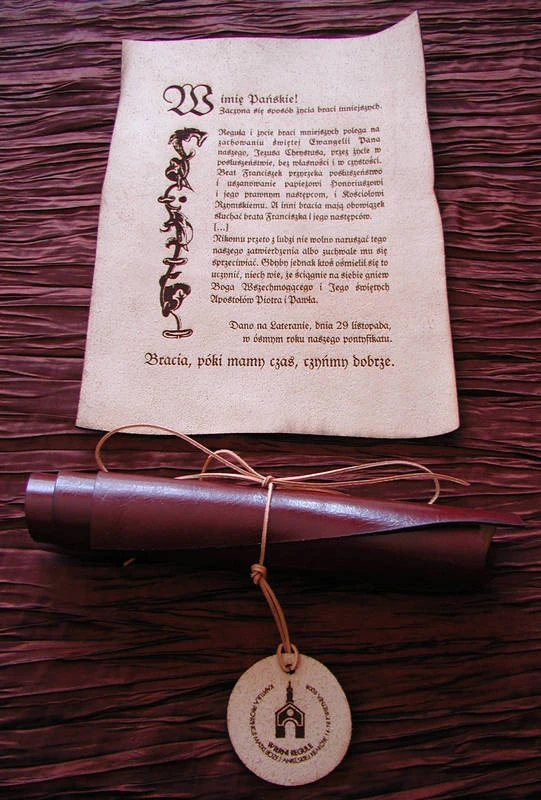 W imię Pańskie!
Zaczyna się sposób życia braci mniejszych.
Reguła i życie braci mniejszych polega na
zachowaniu świętej Ewangelii Pana
naszego, Jezusa Chrystusa, przez życie w
posłuszeństwie, bez własności i w czystości.
Brat Franciszek przyrzeka posłuszeństwo
i uszanowanie papieżowi Honoriuszowi
i jego prawnym następcom, i Kościołowi
Rzymskiemu. A inni bracia mają obowiązek
słuchać brata Franciszka i jego następców.
[...]
Nikomu przeto z ludzi nie wolno naruszać tego
naszego zatwierdzenia albo zuchwale mu się
sprzeciwiać. Gdyby jednak ktoś ośmielił się to
uczynić, niech wie, że ściągnie na siebie gniew
Boga Wszechmogącego i Jego świętych
Apostołów Piotra i Pawła.
Dano na Lateranie, dnia 29 listopada,
w ósmym roku naszego pontyfikatu.
Bracia, póki mamy czas, czyńmy dobrze.
WIERNI REGULE